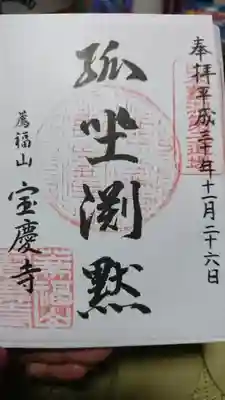 奉拝平成三十年十一月二十六日
孤坐渕黙
薦福山
宝慶寺